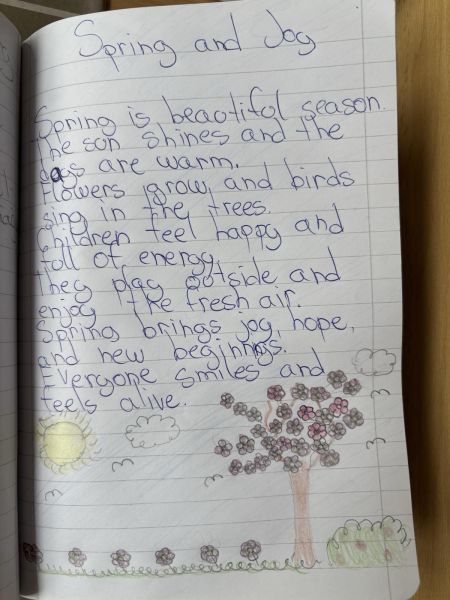 Spring and Joy
Spring is beautiful season.
The sun shines and the
days are warm.
Flowers grow, and birds
sing in the trees.
Children feel happy and
full of energy.
They play outside and
enjoy the fresh air.
Spring brings joy, hope,
and new beginnings.
Everyone smiles and
feels alive.